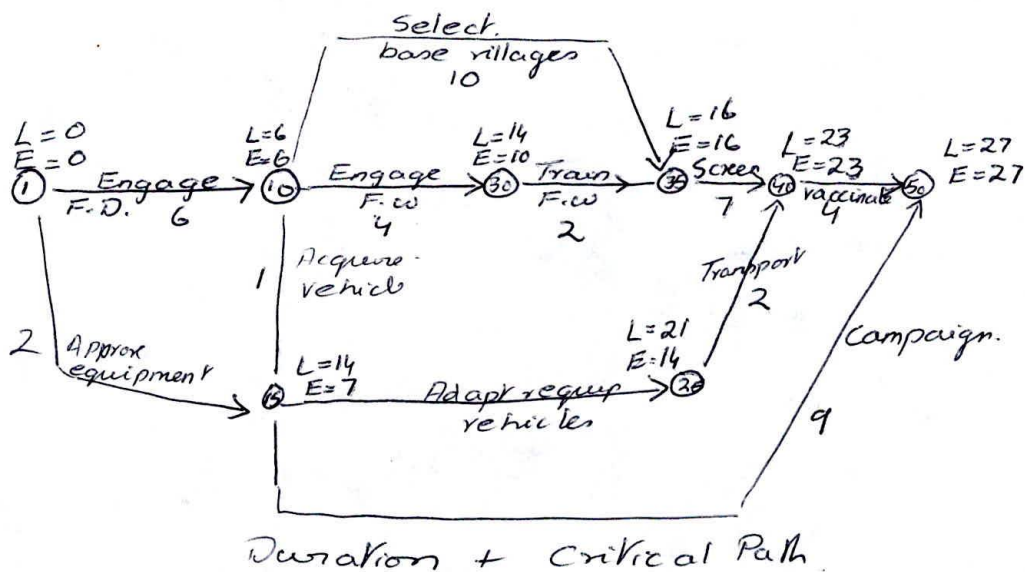 Select.
base villages
10
L=0
E=0
1
Engage
F.D.
6
L=6
E=6
10
Engage
F.W
4
L=14
E=10
30
Train
F.W
2
L=16
E=16
35
Screen
7
L=23
E=23
40
vaccinate
4
L=27
E=27
50
1
Acquire
vehicle
Transport
2
2
equipment
L=14
E=7
15
Adapt requip
vehicles
L=21
E=14
Campaign.
9
Duration + Critical Path